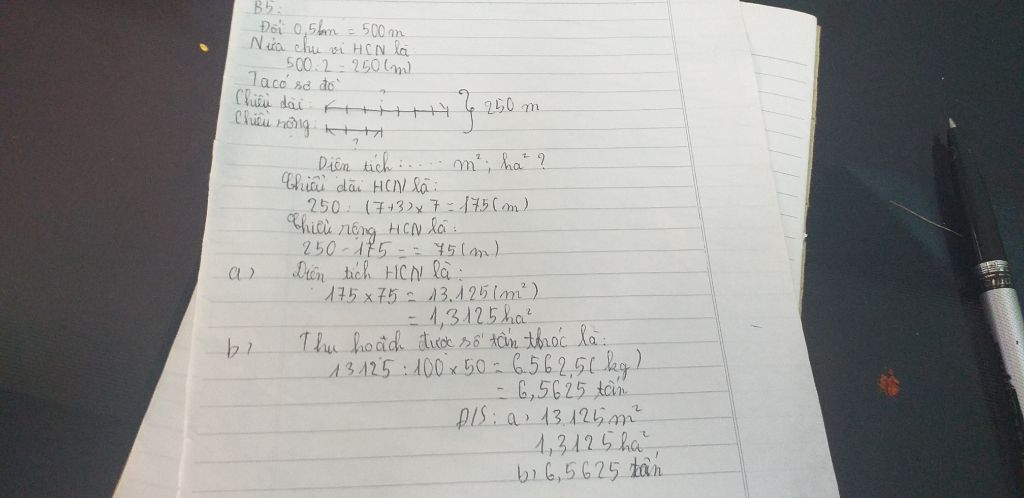 B5:
Đổi 0,5km = 500m
Nửa chu vi HCN là:
500:2 = 250(m)
Ta có sơ đồ
?
Chiều dài: } 250 m
Chiều rộng:
?
Diện tích : .... m²; ha² ?
Chiều dài HCN là:
250 : (7+3) × 7 = 175(m)
Chiều rộng HCN là:
250 - 175 = = 75(m)
a) Diện tích HCN là:
175 × 75 = 13.125(m²)
= 1,3125ha²
b) Thu hoạch được số tấn thóc là:
13125 : 100 × 50 = 6.562,5(kg)
= 6,5625 tấn
Đ/S: a) 13.125m²
1,3125ha²
b) 6,5625 tấn